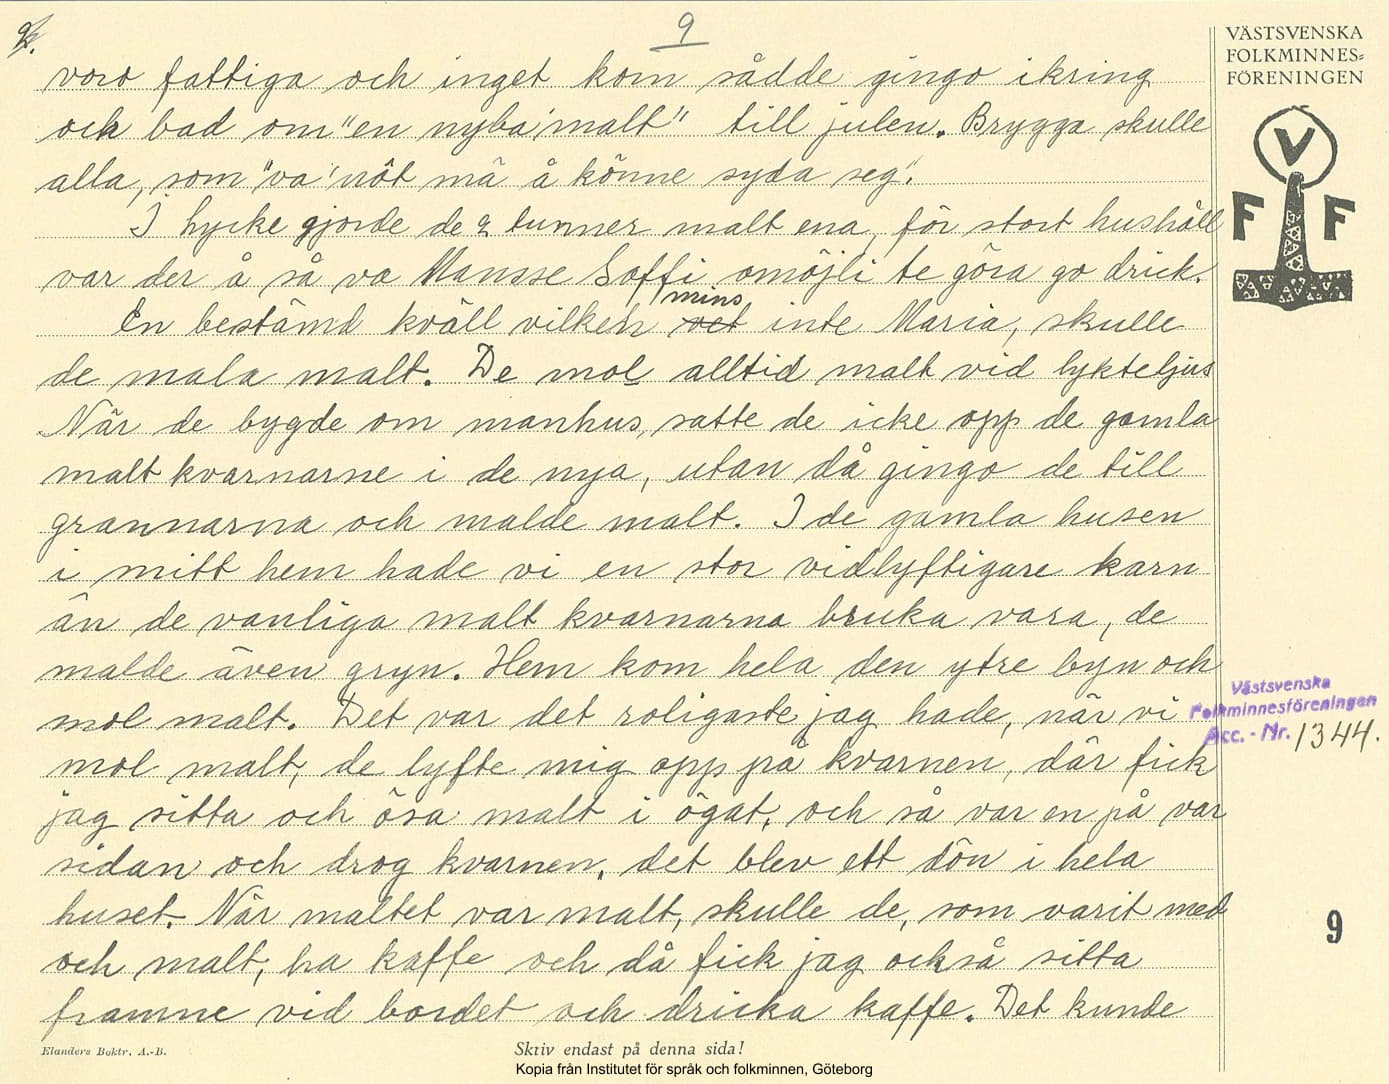 9
VÄSTSVENSKA
FOLKMINNES=
FÖRENINGEN
voro fattiga och inget korn sådde gingo ikring
och bad om "en nyba' malt" till julen. Brygga skulle
alla, som "va' nôt mä å könne syda seg".
I hycke gjorde de 2 tunner malt ena, för stort hushåll
var der å så va Mansse Soffi omöjli te göra go drick.
mins
En bestämd kväll vilken vet inte Maria, skulle
de mala malt. De mol alltid malt vid lykteljus
När de bygde om manhus, satte de icke opp de gamla
malt kvarnarne i de nya, utan då gingo de till
grannarna och malde malt. I de gamla husen
i mitt hem hade vi en stor vidlyftigare karn
än de vanliga malt kvarnarna bruka vara, de
malde även gryn. Hem kom hela den ytre byn och
mol malt. Det var det roligaste jag hade, när vi
mol malt, de lyfte mig opp på kvarnen, där fick
jag sitta och ösa malt i ögat, och så var en på var
sidan och drog kvarnen, det blev ett dön i hela
huset. När maltet var malt, skulle de, som varit med
och malt, ha kaffe och då fick jag också sitta
framme vid bordet och dricka kaffe. Det kunde
V
F F
Västsvenska
Folkminnesföreningen
Acc. - Nr. 1344.
9
Elanders Boktr. A.-B.
Skriv endast på denna sida!
Kopia från Institutet för språk och folkminnen, Göteborg